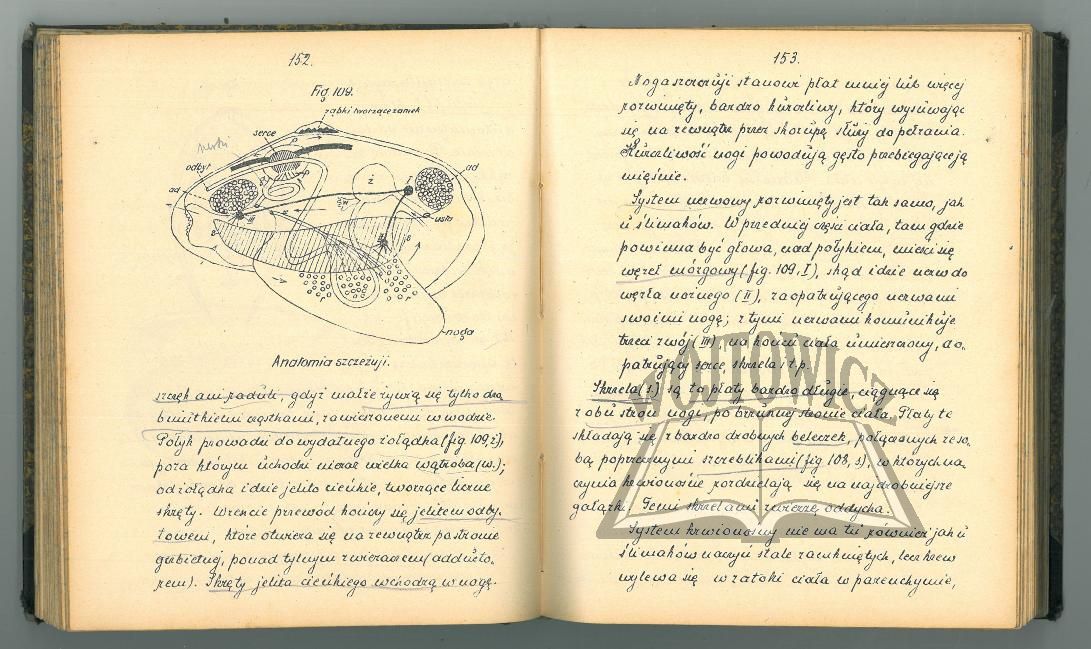 152.
Fig 109.
ząbki tworzące zamek
serce
nerki
odbyt
ad
ad
ż
I
usta
III
II
s
A
A
r
r
noga
Anatomia szczeżuji.
szczęk ani raduli, gdyż małże żywią się tylko dro
bniutkiemi cząstkami, zawieszonemi w wodzie.
Połyk prowadzi do wydatnego żołądka (fig 109, ż),
poza którym uchodzi nieraz wielka wątroba (w.);
od żołądka idzie jelito cieńkie, tworzące liczne
skręty. Wreszcie przewód kończy się jelitem odby,
towem, które otwiera się na zewnątrz po stronie
grzbietnej, ponad tylnym zwieraczem (addukto,
rem). Skręty jelita cieńkiego wchodzą w nogę.
153.
Noga szczeżuji stanowi płat mniej lub więcej
rozwinięty, bardzo kurczliwy, który wysuwając
się na zewnątrz przez skorupę służy do pełzania.
Kurczliwość nogi powodują gęsto przebiegające ją
mięśnie.
System nerwowy rozwinięty jest tak samo, jak
u ślimaków. W przedniej części ciała, tam gdzie
powinna być głowa, nad połykiem, mieści się
węzeł mózgowy (fig. 109, I), skąd idzie nerw do
węzła nożnego (II), zaopatrującego nerwami
swoimi nogę; z tymi nerwami komunikuje
trzeci zwój (III), na końcu ciała umieszczony, zao,
patrujący serce, skrzela i t.p.
Skrzela (s) są to płaty bardzo długie, ciągnące się
z obu stron nogi, po brzusznej stronie ciała. Płaty te
składają się z bardzo drobnych beleczek, połączonych ze so,
bą poprzecznymi szczeblikami (fig 108, s), w których na,
czynia krwionośne rozdzielają się na najdrobniejsze
gałązki. Temi skrzelami zwierzę oddycha.
System krwionośny nie ma tu również jak u
ślimaków naczyń stale zamkniętych, lecz krew
wylewa się w zatoki ciała w parenchymie,
WÓJTOWICZ